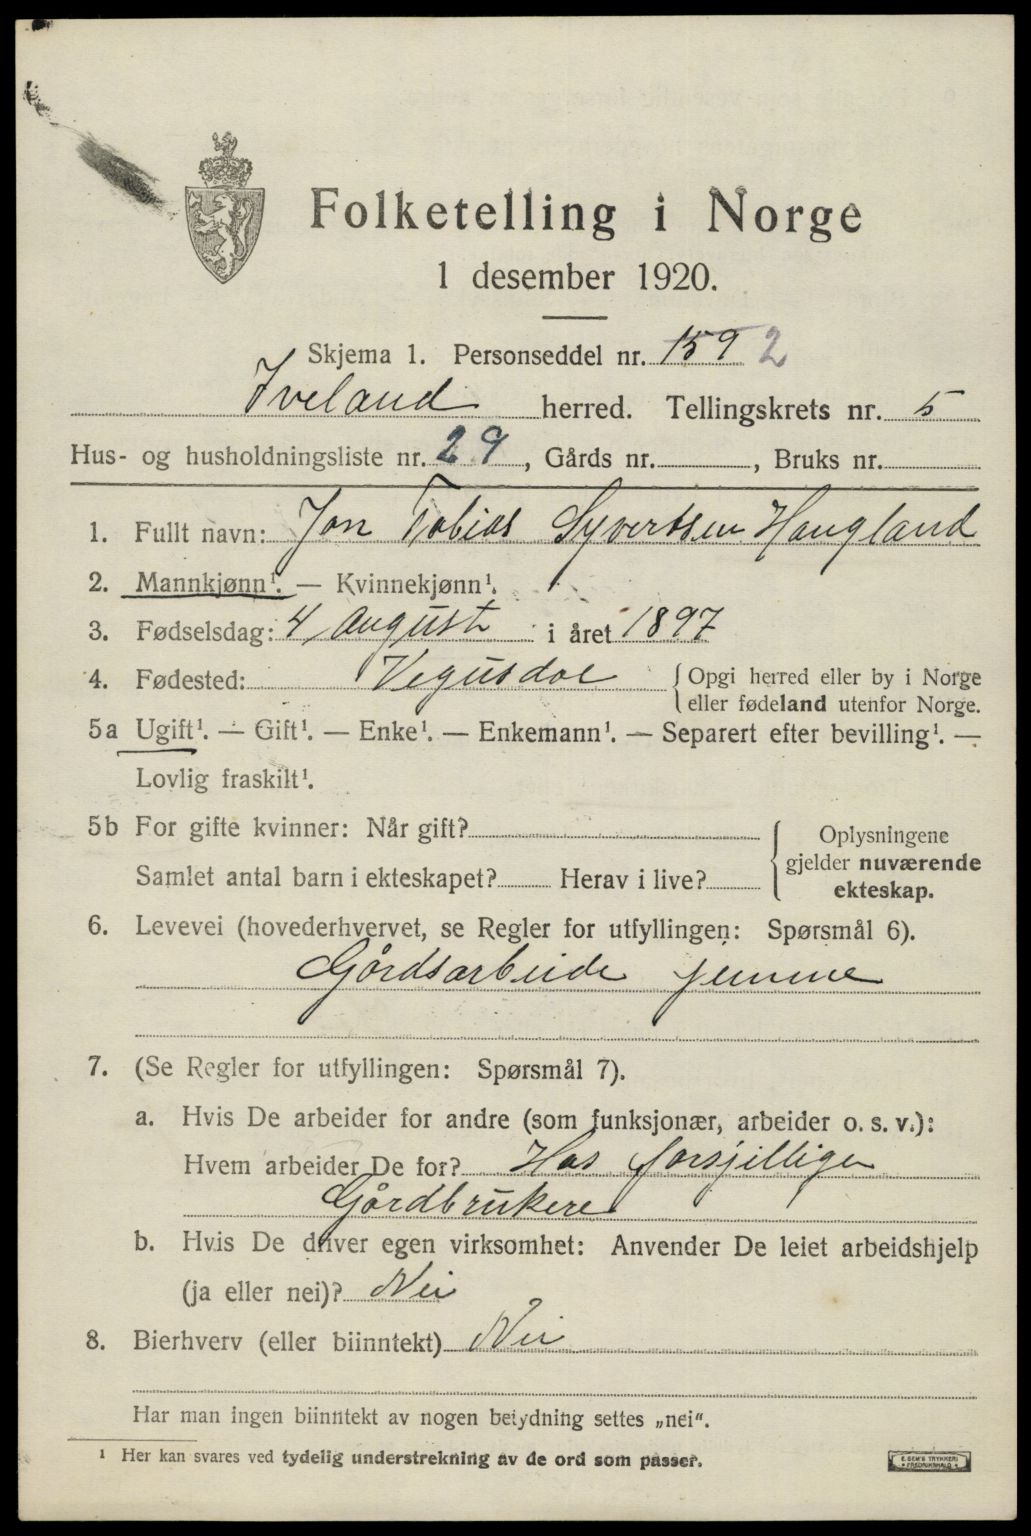 Folketelling i Norge
1 desember 1920.
Skjema 1. Personseddel nr. 159 2
Iveland herred. Tellingskrets nr. 5
Hus- og husholdningsliste nr. 29, Gårds nr. , Bruks nr.
1. Fullt navn: Jon Tobias Syvertsen Haugland
2. Mannkjønn¹. — Kvinnekjønn¹.
3. Fødselsdag: 4 august i året 1897
4. Fødested: Vegusdal { Opgi herred eller by i Norge
eller fødeland utenfor Norge.
5a Ugift¹. — Gift¹. — Enke¹. — Enkemann¹. — Separert efter bevilling¹. —
Lovlig fraskilt¹.
5b For gifte kvinner: Når gift?
Samlet antal barn i ekteskapet? Herav i live?
{ Oplysningene
gjelder nuværende
ekteskap.
6. Levevei (hovederhvervet, se Regler for utfyllingen: Spørsmål 6).
Gårdsarbeide jemme
7. (Se Regler for utfyllingen: Spørsmål 7).
a. Hvis De arbeider for andre (som funksjonær, arbeider o. s. v.):
Hvem arbeider De for? Hos forsjellige
Gårdbrukere
b. Hvis De driver egen virksomhet: Anvender De leiet arbeidshjelp
(ja eller nei)? Nei
8. Bierhverv (eller biinntekt) Nei
Har man ingen biinntekt av nogen betydning settes „nei“.
¹ Her kan svares ved tydelig understrekning av de ord som passer.
E. SEM'S TRYKKERI
FREDRIKSHALD